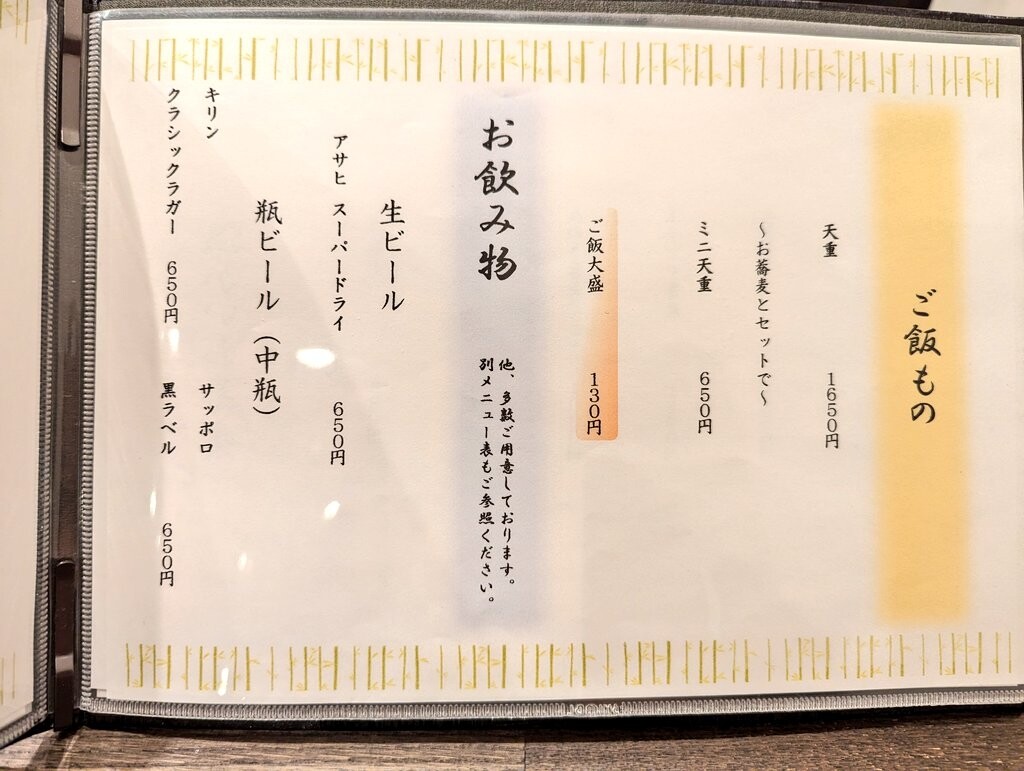 ご飯もの
天重 1650円
～お蕎麦とセットで～
ミニ天重 650円
ご飯大盛 130円
お飲み物
他、多数ご用意しております。
別メニュー表もご参照ください。
生ビール
アサヒ スーパードライ 650円
瓶ビール（中瓶）
キリン
クラシックラガー 650円
サッポロ
黒ラベル 650円